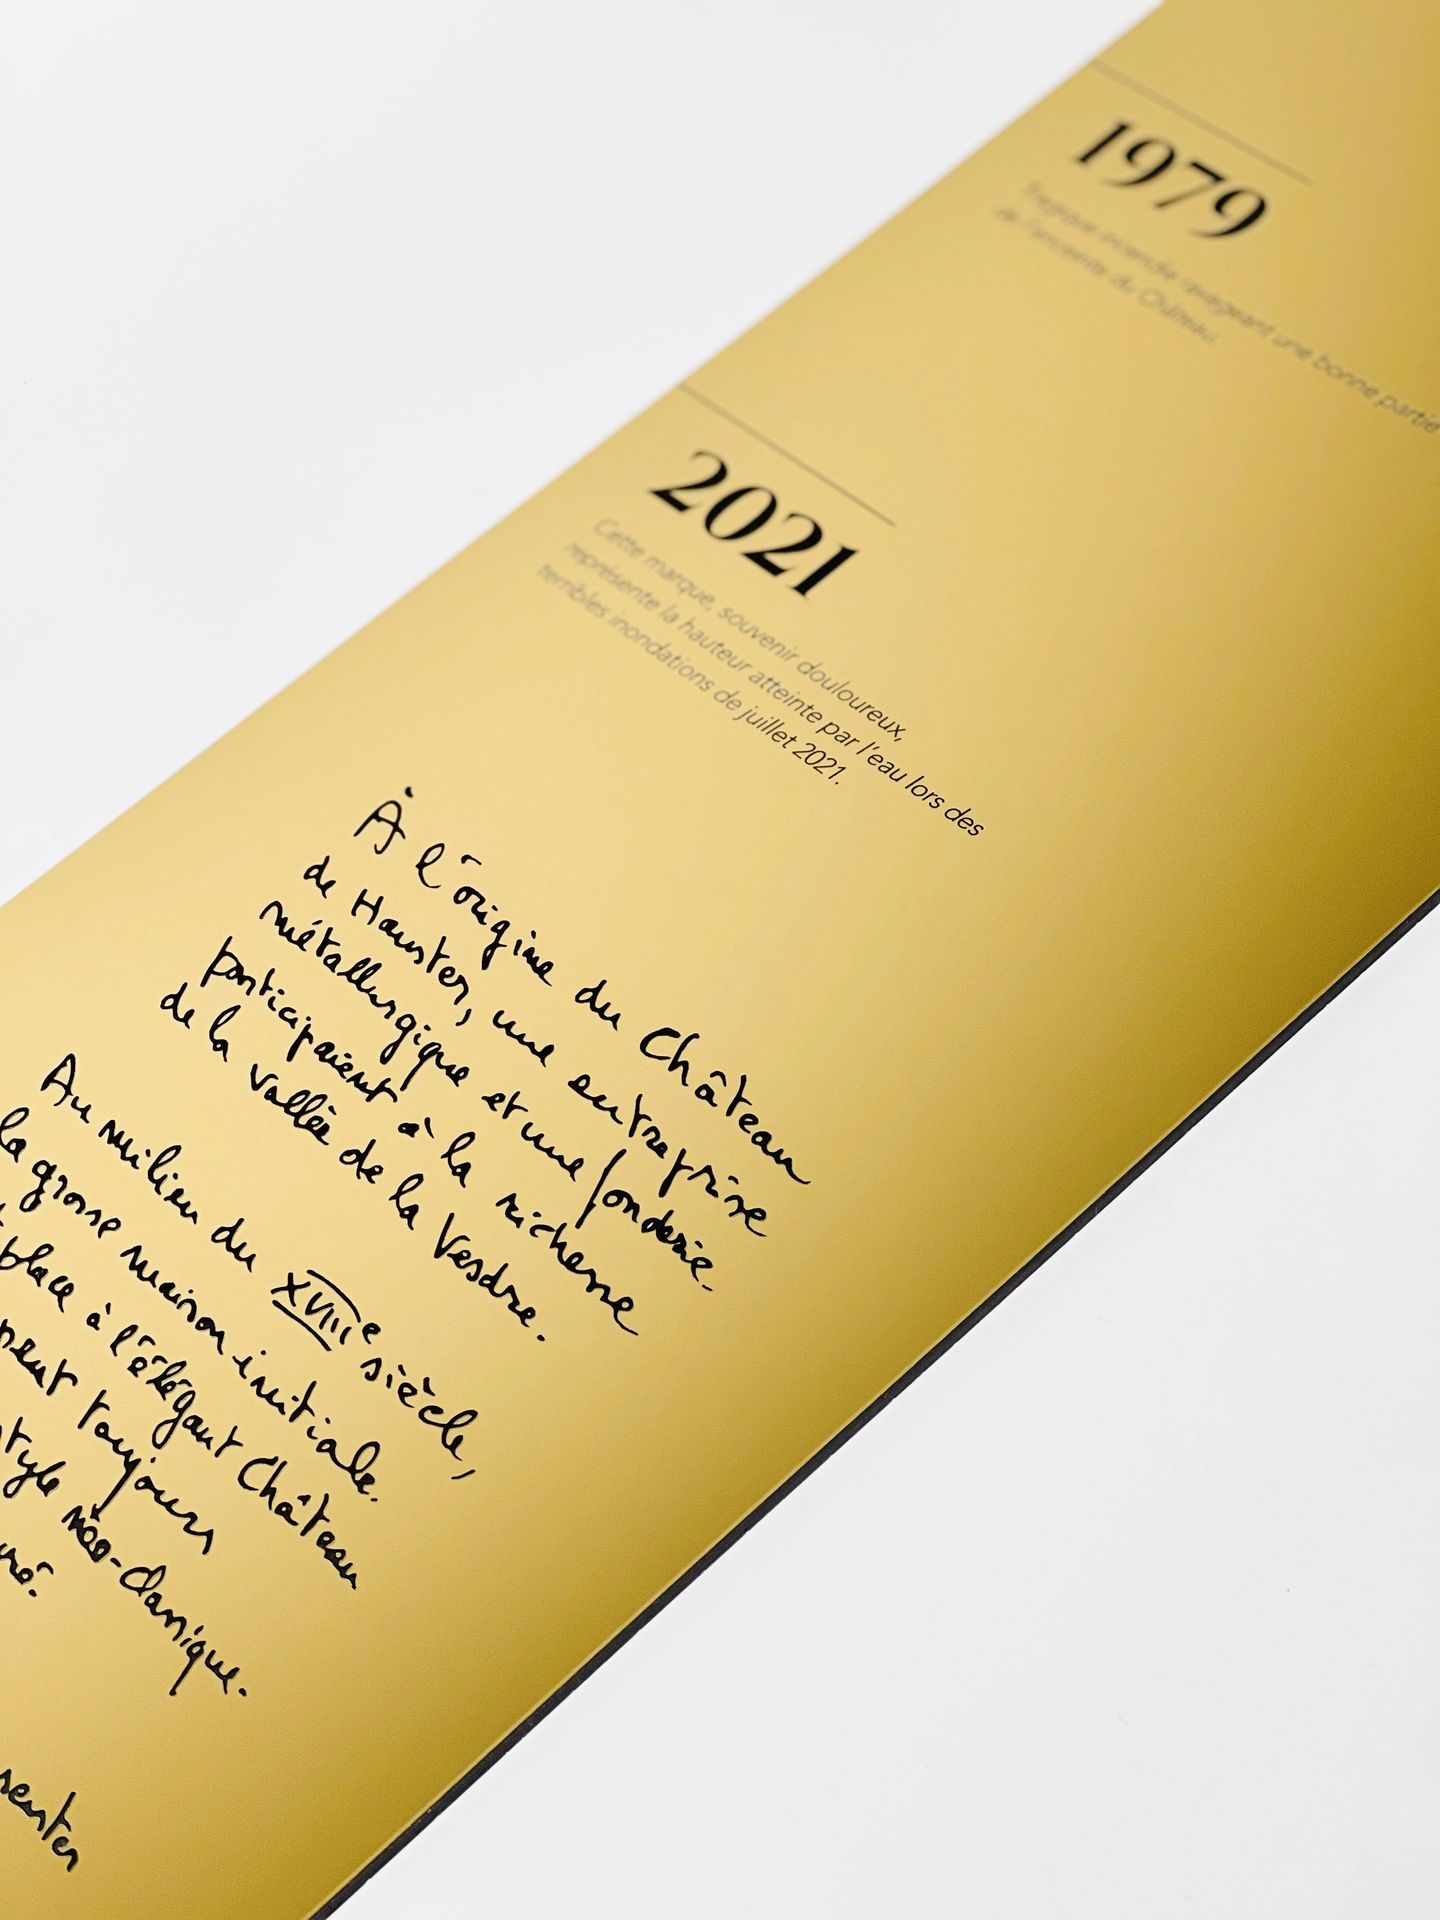 1979
Tragique incendie ravageant une bonne partie
de l'enceinte du Château.
2021
Cette marque, souvenir douloureux,
représente la hauteur atteinte par l'eau lors des
terribles inondations de juillet 2021.
À l'origine du Château
de Hauster, une entreprise
métallurgique et une fonderie
participaient à la richesse
de la vallée de la Vesdre.
Au milieu du XVIIIe siècle,
la grosse maison initiale
place à l'élégant Château
toujours
style néo-classique.